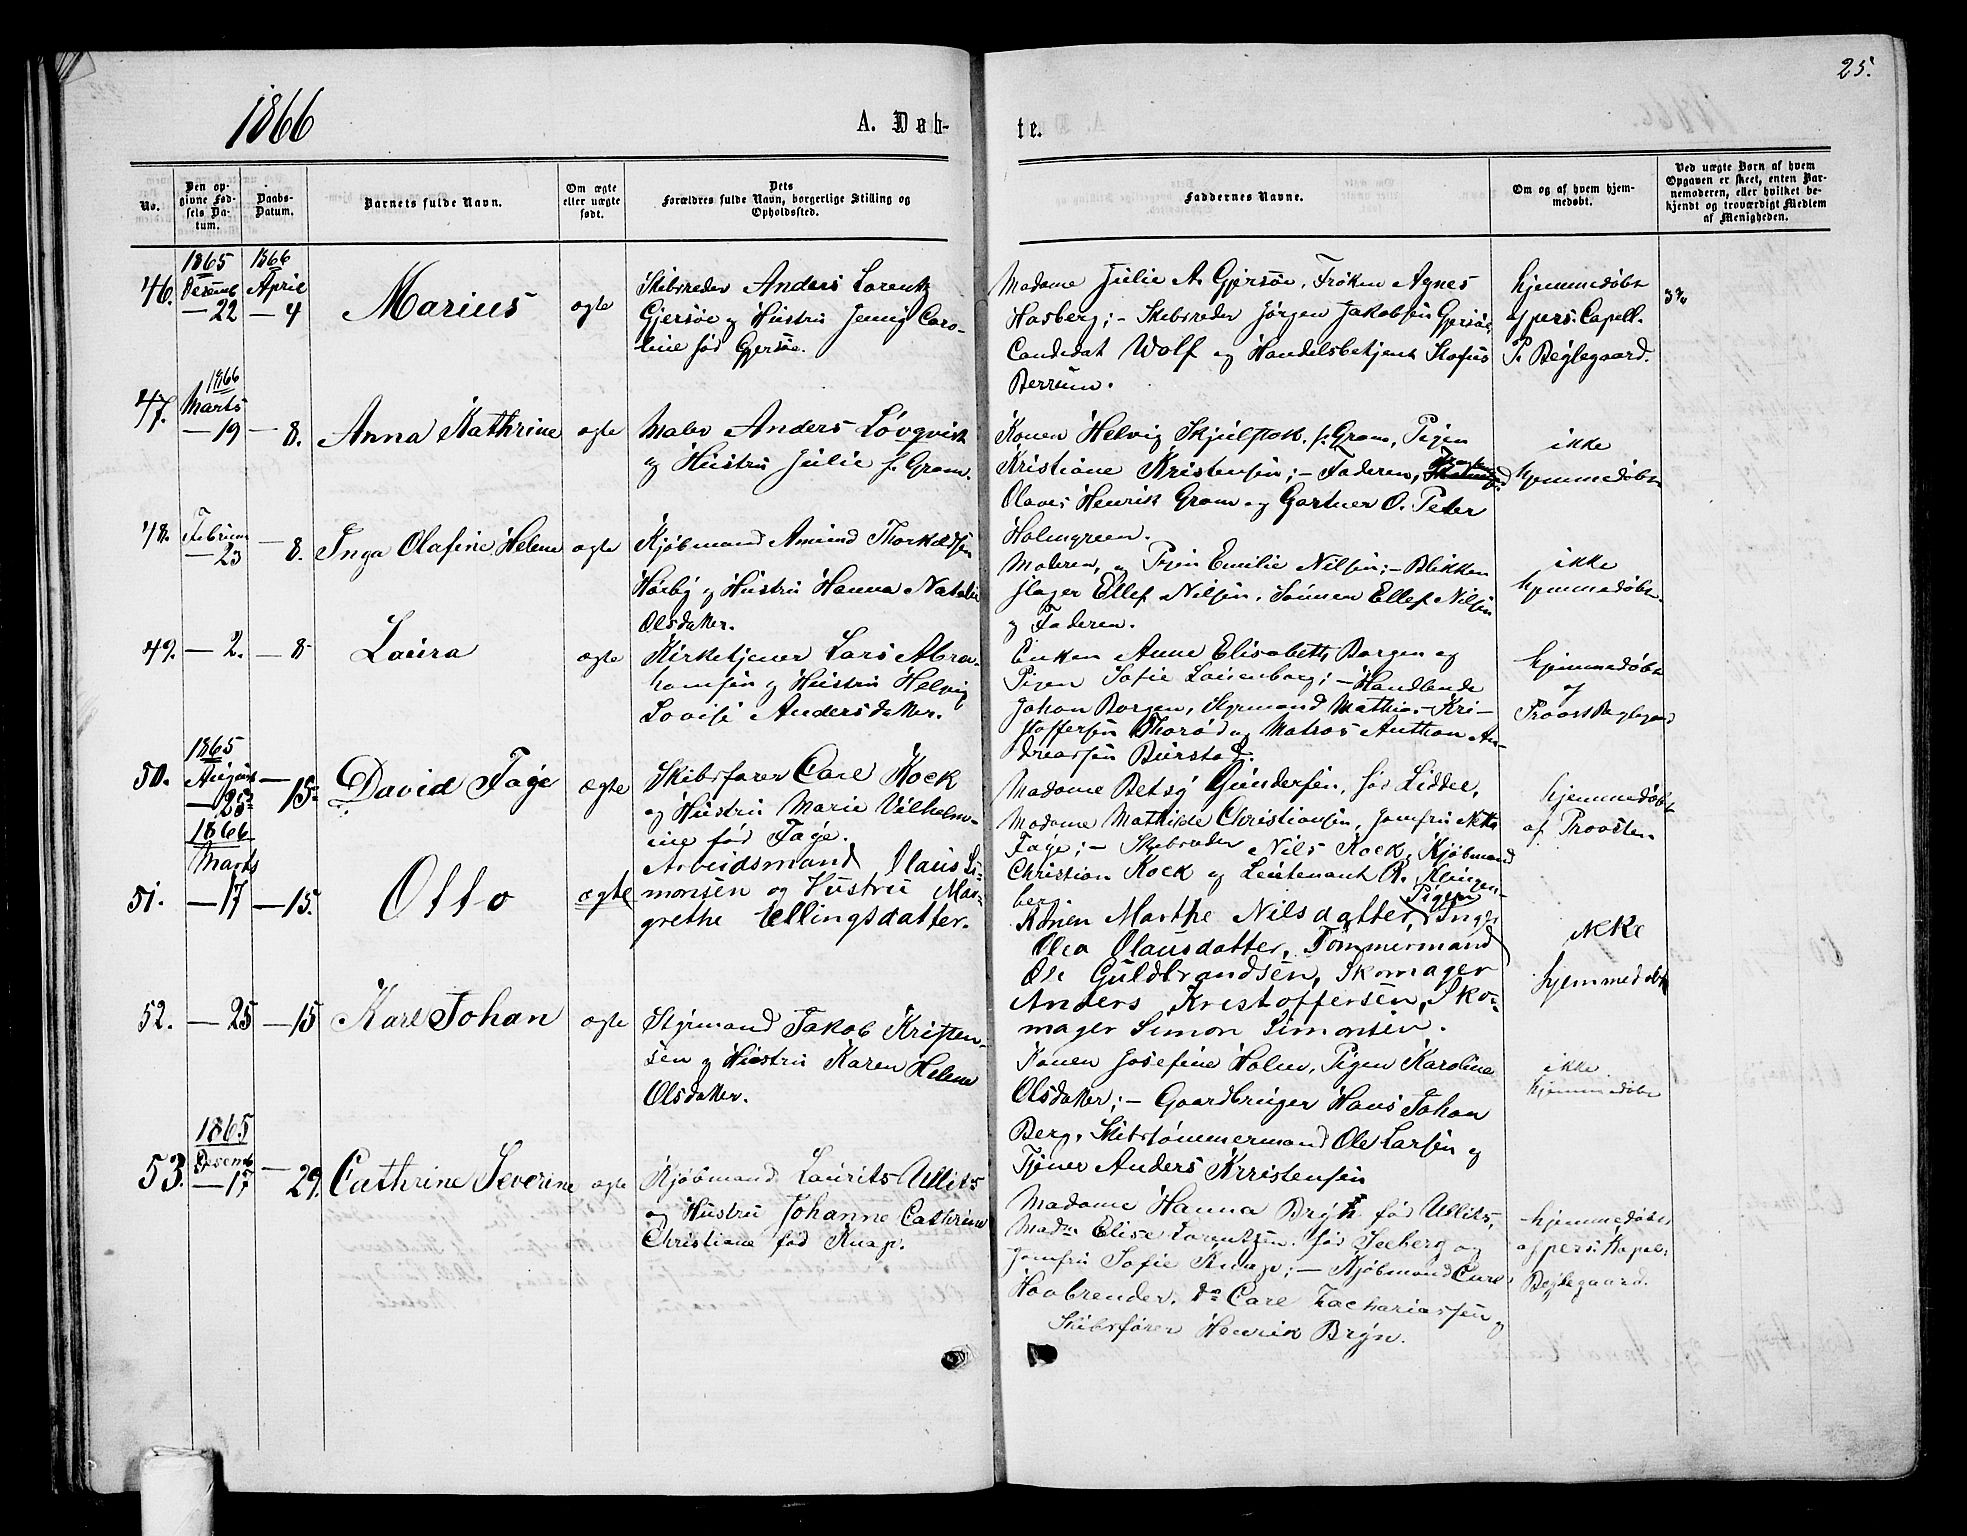 25.
1866
A. Døb-
te.
No.
Den op-
givne Fød-
sels Da-
tum.
Daabs-
Datum.
Barnets fulde Navn.
Om ægte
eller uægte
født.
Dets
Forældres fulde Navn, borgerlige Stilling og
Opholdssted.
Faddernes Navne.
Om og af hvem hjem-
medøbt.
Ved uægte Børn af hvem
Opgaven er skeet, enten Bar-
nemoderen, eller hvilket be-
kjendt og troværdigt Medlem
af Menigheden.
46.
1865
Decemb
— 22
1866
April
— 4
Marius
ægte
Skibsreder Anders Lorentz
Gjersøe og Hustru Jenny Caro-
line fød Gjersøe.
Madame Julie A. Gjersøe, Frøken Agnes
Hasberg; — Skibsreder Jørgen Jakobsen Gjersøe,
Candidat Wolf og Handelsbetjent
Berrum.
hjemmedøbt
af pers. Capell.
P. Bøylegaard.
47.
1866
Marts
— 19
— 8.
Anna Kathrine
ægte
Maler Anders Løvqvist
og Hustru Julie f. Gram.
Konen Helvig Skjulstok f. Gram, Pigen
Kristiane Kristensen; — Faderen,
Olaves Henrik Gram og Gartner O. Peter
Holmgreen.
ikke
hjemmedøbt
48.
Februar
— 23
— 8.
Inga Olafine Helene
ægte
Kjøbmand Amund Thorkildsen
Høiby og Hustru Hanna Natalie
Olsdatter.
Moderen, og Pigen Emilie Nilsen; — Blikken
slager Ellef Nilsen, Sønnen Ellef Nilsen
og Faderen.
ikke
hjemmedøbt.
49.
— 2.
— 8
Laura
ægte
Kirketjener Lars Abra-
hamsen og Hustru Helvig
Lovise Andersdatter.
Enken Anne Elisabeth Borgen og
Pigen Sofie Lauenborg; — Handlende
Johan Borgen, Styrmand Mathias Kri-
stoffersen Thorød og Matros Anthon An-
dreassen Burstad.
hjemmedøbt
af
Provst Bøylegaard
50.
1865
August
— 25
— 15
David Faye
ægte
Skibsfører Carl Kock
og Hustru Marie Vilhelm-
ine fød Faye.
Madame Betsy Gundersen, fød Liddel,
Madame Mathilde Christiansen, Jomfru Netta
Faye; — Skibsreder Nils Kock, Kjøbmand
Christian Kock og Leutenant R. Klingen-
berg.
hjemmedøbt
af Provsten
51.
1866
Marts
— 17
— 15.
Otto
ægte
Arbeidsmand Olaus Si-
monsen og Hustru Mar-
grethe Ellingsdatter.
Konen Marthe Nilsdatter, Pigen Inger
Olea Olausdatter, Tømmermand
Ole Guldbrandsen, Skomager
Anders Kristoffersen, Sko-
mager Simon Simonsen.
ikke
hjemmedøbt
52.
— 25
— 15
Karl Johan
ægte
Styrmand Jakob Kristen-
sen og Hustru Karen Helene
Olsdatter.
Konen Josefine Holm, Pigen Karoline
Olsdatter; — Gaardbruger Hans Johan
Berg, Skibstømmermand Ole Larsen og
Tjener Anders Kristensen
ikke
hjemmedøbt
53.
1865
Desemb
— 17
— 29.
Cathrine Severine
ægte
Kjøbmand Laurits Ullits
og Hustru Johanne Cathrine
Christiane fød Knap.
Madame Hanna Bryn fød Ullits,
Madm Elise Lorentzen, fød Seeberg og
Jomfru Sofie Knap; — Kjøbmand Carl
Haabrender, Do Carl Zachariassen og
Skibsfører Henrik Bryn.
hjemmedøbt
af pers. Kapel.
Bøylegaard.